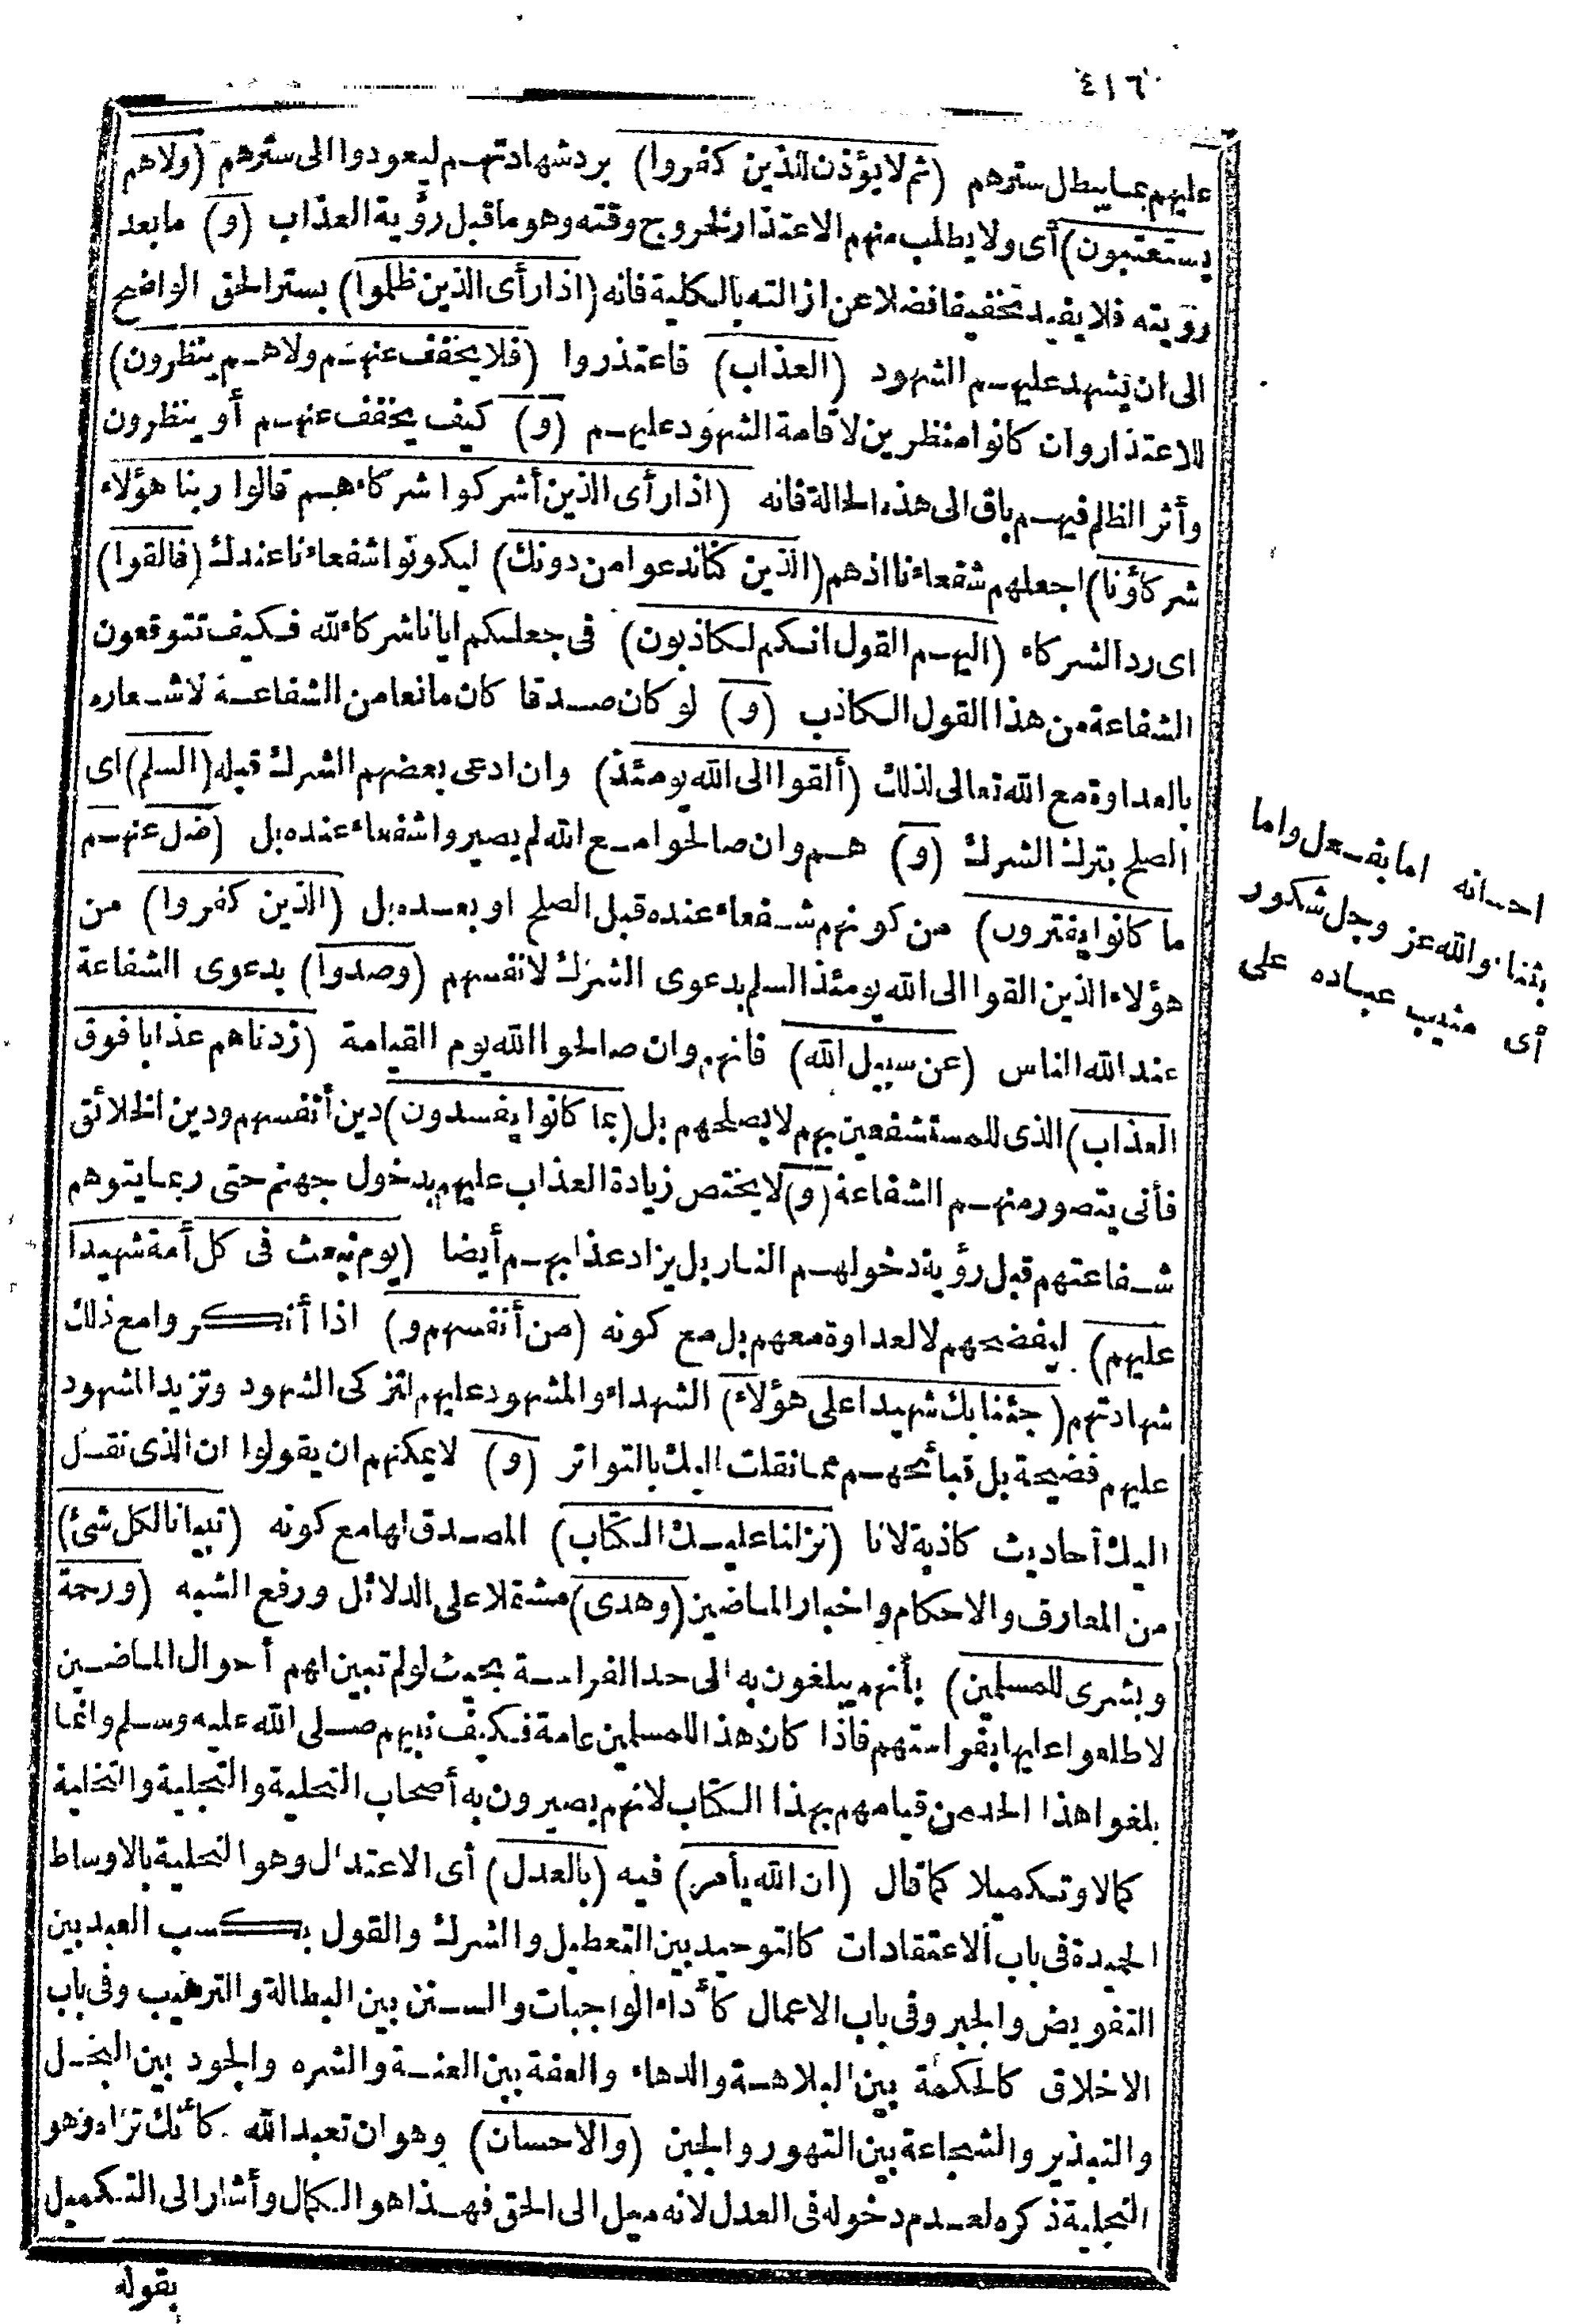 ٤١٦
عليهم بما يبطل سترهم (ثم لا يؤذن للذين كفروا) برد شهادتهم ليعودوا الى سترهم (ولا هم
يستعتبون) أى ولا يطلب منهم الاعتذار لخروج وقته وهو ما قبل رؤية العذاب (و) ما بعد
رؤيته فلا يفيد تخفيفا فضلا عن ازالته بالكلية فانه (اذا رأى الذين ظلموا) بستر الحق الواضح
الى ان يشهد عليهم الشهود (العذاب) فاعتذروا (فلا يخفف عنهم ولا هم ينظرون)
للاعتذار وان كانوا منظرين لاقامة الشهود عليهم (و) كيف يخفف عنهم أو ينظرون
وأثر الظلم فيهم باق الى هذه الحالة فانه (اذا رأى الذين أشركوا شركاءهم قالوا ربنا هؤلاء
شركاؤنا) اجعلهم شفعاءنا اذهم (الذين كنا ندعوا من دونك) ليكونوا شفعاءنا عندك (فالقوا)
اى رد الشركاء (اليهم القول انكم لكاذبون) فى جعلكم ايانا شركاء لله فكيف تتوقعون
الشفاعة من هذا القول الكاذب (و) لو كان صدقا كان مانعا من الشفاعة لاشعاره
بالعداوة مع الله تعالى لذلك (ألقوا الى الله يومئذ) وان ادعى بعضهم الشرك قبله (السلم) اى
الصلح بترك الشرك (و) هم وان صالحوا مع الله لم يصيروا شفعاء عنده بل (ضل عنهم
ما كانوا يفترون) من كونهم شفعاء عنده قبل الصلح او بعده بل (الذين كفروا) من
هؤلاء الذين القوا الى الله يومئذ السلم بدعوى الشرك لانفسهم (وصدوا) بدعوى الشفاعة
عند الله الناس (عن سبيل الله) فانهم وان صالحوا الله يوم القيامة (زدناهم عذابا فوق
العذاب) الذى للمستشفعين بهم لا يصلحهم بل (بما كانوا يفسدون) دين أنفسهم ودين الخلائق
فأنى يتصور منهم الشفاعة (و) لا يختص زيادة العذاب عليهم بدخول جهنم حتى ربما يتوهم
شفاعتهم قبل رؤية دخولهم النار بل يزاد عذابهم أيضا (يوم نبعث فى كل أمة شهيدا
عليهم) ليفضحهم لا لعداوة معهم بل مع كونه (من أنفسهم و) اذا أنكروا مع ذلك
شهادتهم (جئنا بك شهيدا على هؤلاء) الشهداء والمشهود عليهم لتزكى الشهود وتزيد المشهود
عليهم فضيحة بل قبائحهم مما نقلت اليك بالتواتر (و) لا يمكنهم ان يقولوا ان الذى نقل
اليك أحاديث كاذبة لانا (نزلنا عليك الكتاب) المصدق لها مع كونه (تبيانا لكل شئ)
من المعارف والاحكام واخبار الماضين (وهدى) مشتملا على الدلائل ورفع الشبه (ورحمة
وبشرى للمسلمين) بأنهم يبلغون به الى حد الفراسة بحيث لو لم تبين لهم أحوال الماضين
لاطلعوا عليها بفراستهم فاذا كان هذا للمسلمين عامة فكيف نبيهم صلى الله عليه وسلم وانما
بلغوا هذا الحد من قيامهم بهذا الكتاب لانهم يصيرون به أصحاب التحلية والتجلية والتخلية
كمالا وتكميلا كما قال (ان الله يأمر) فيه (بالعدل) أى الاعتدال وهو التحلية بالاوساط
الحميدة فى باب الاعتقادات كالتوحيد بين التعطيل والشرك والقول بكسب العبد بين
التفويض والجبر وفى باب الاعمال كأداء الواجبات والسنن بين البطالة والترهب وفى باب
الاخلاق كالحكمة بين البلاهة والدهاء والعفة بين العنة والشره والجود بين البخل
والتبذير والشجاعة بين التهور والجبن (والاحسان) وهو ان تعبد الله كأنك تراه وهو
التجلية ذكره لعدم دخوله فى العدل لانه ميل الى الحق فهذا هو الكمال وأشار الى التكميل
بقوله
احسانه اما بفعل واما
بثناء والله عز وجل شكور
أى مثيب عباده على